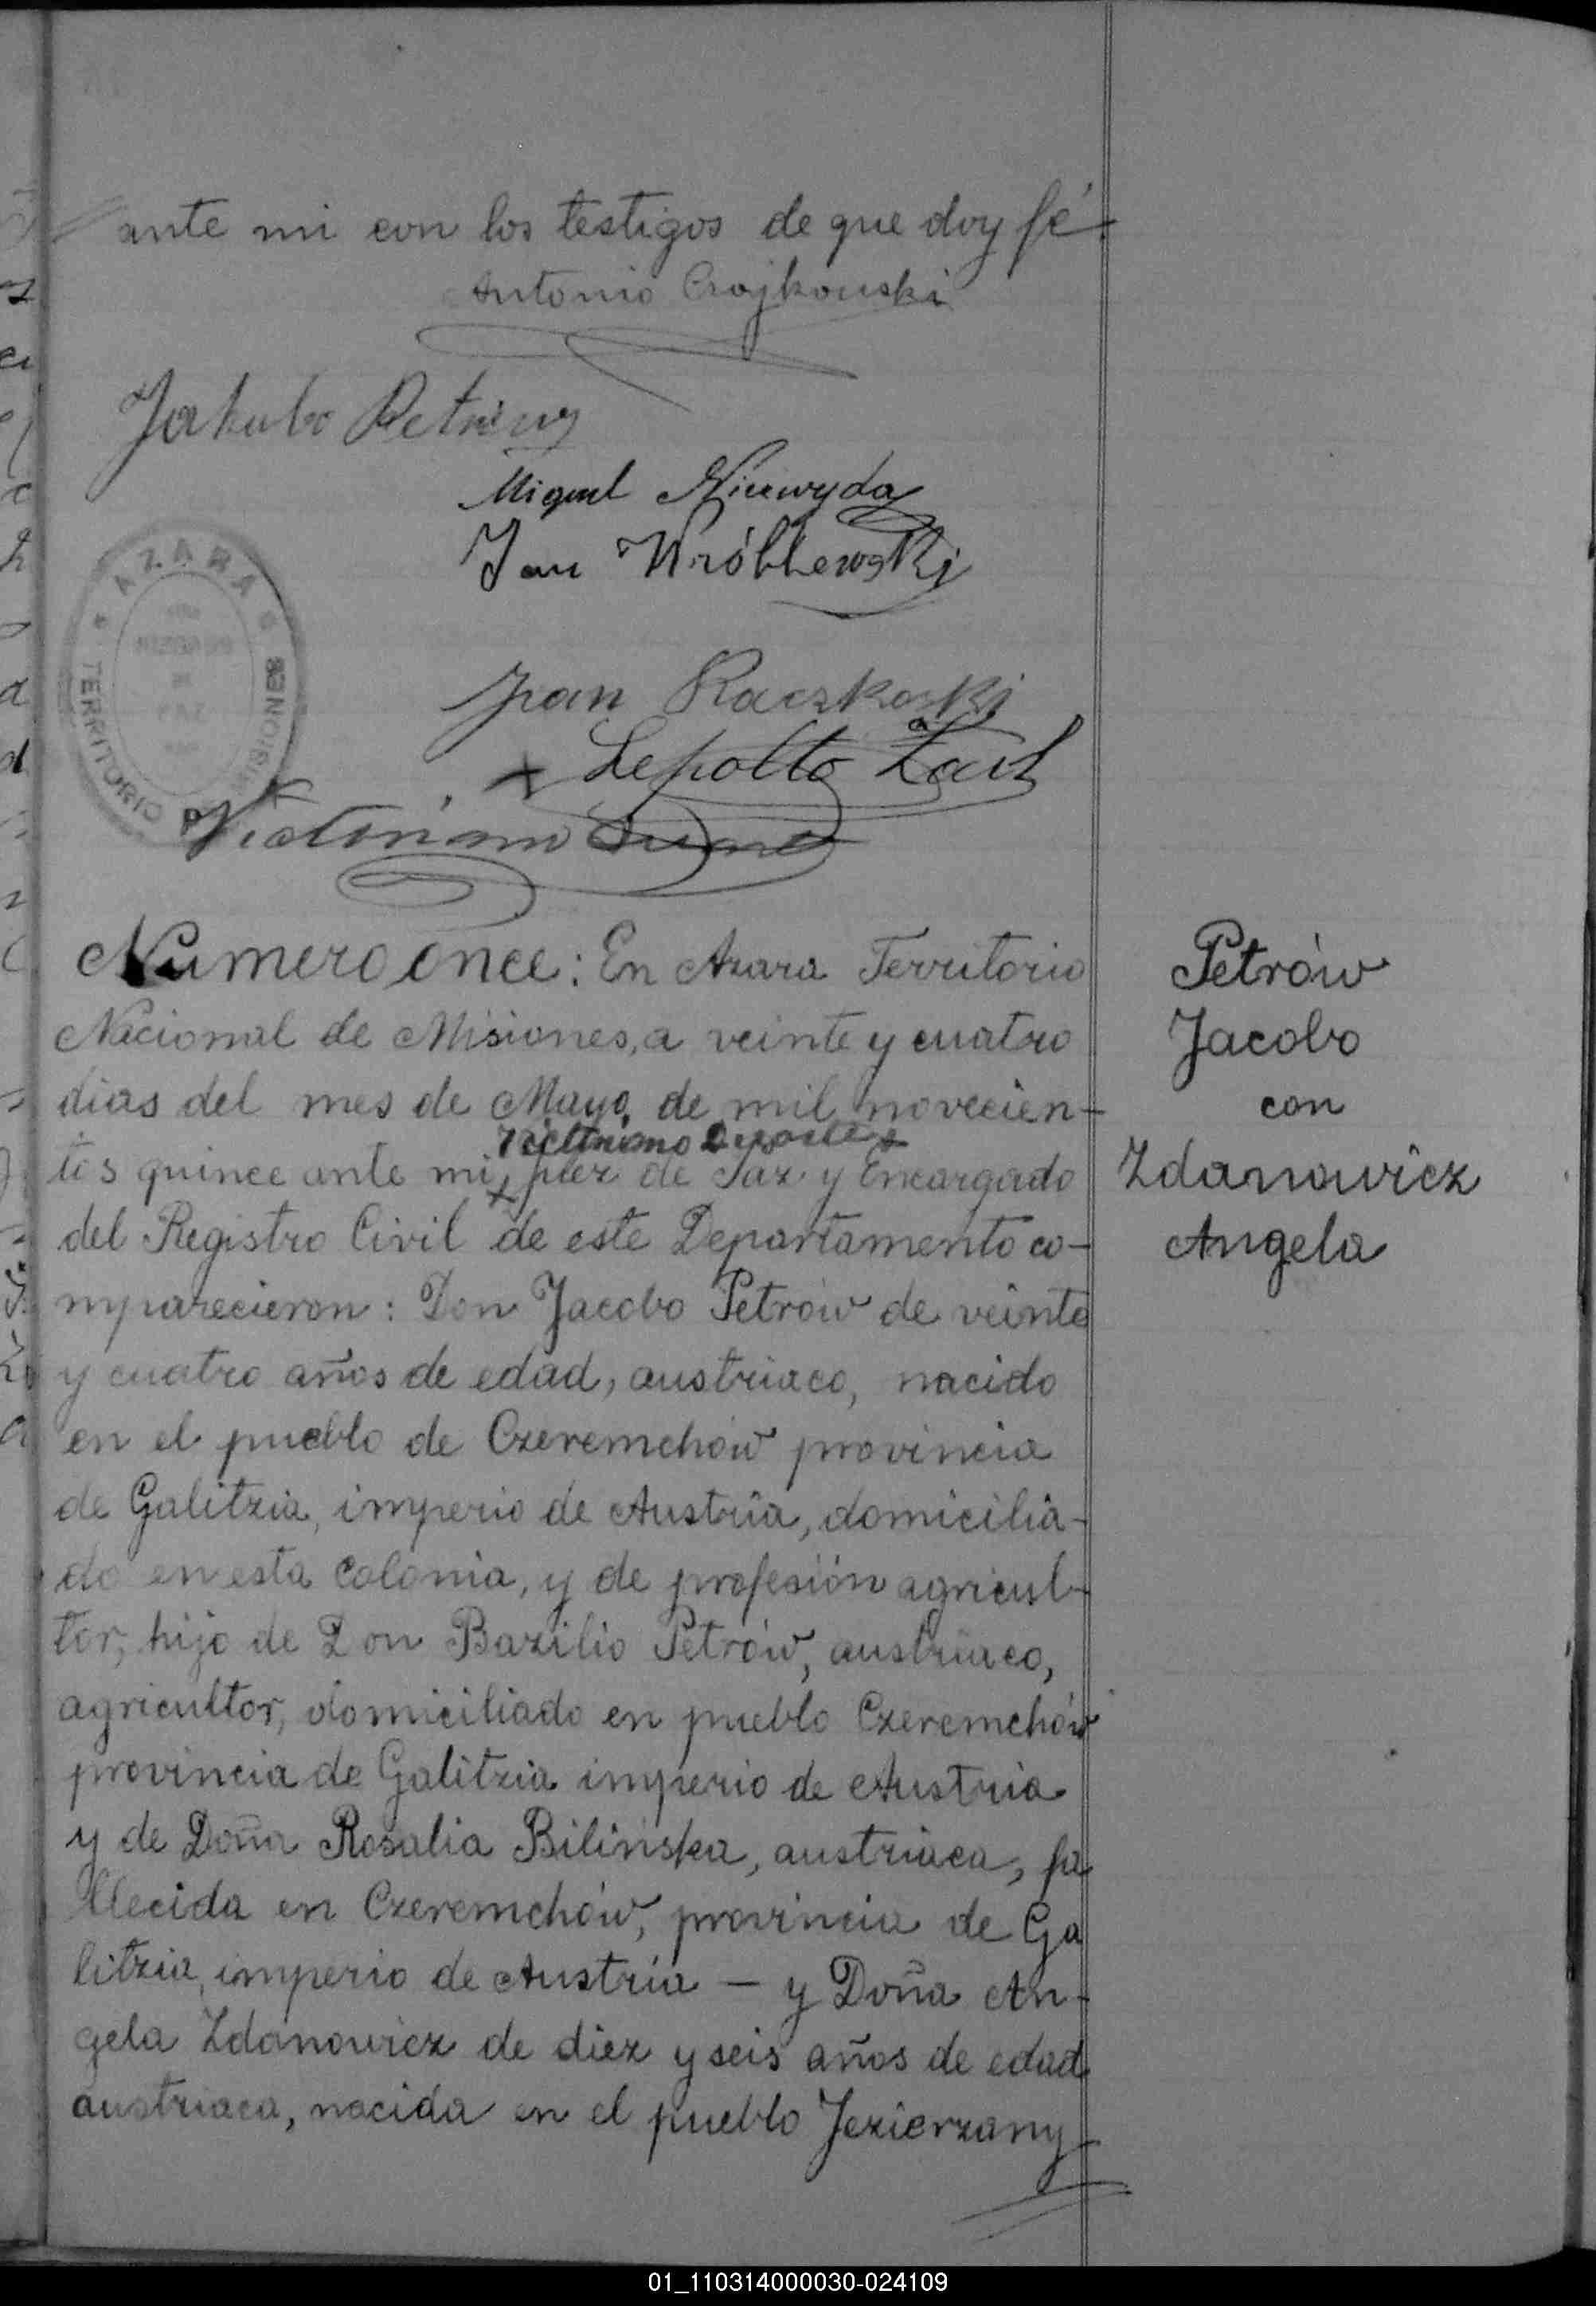 ante mi con los testigos de que doy fé.
Antonio Czajkowski
Jakubo
Miguel Niewyda
Jan Wróblewski
AZARA
TERRITORIO MISIONES
Juan Raczkoski
Victoriano
Numero once: En Azara Territorio
Nacional de Misiones, a veinte y cuatro
dias del mes de Mayo, de mil novecien-
tos quince ante mi, juez de Paz y Encargado
del Registro Civil de este Departamento co-
mparecieron: Don Jacobo Petrów de veinte
y cuatro años de edad, austriaco, nacido
en el pueblo de Czeremchów provincia
de Galitzia, imperio de Austria, domicilia-
do en esta Colonia, y de profesión agricul-
tor, hijo de Don Bazilio Petrów, austriaco,
agricultor, domiciliado en pueblo Czeremchów
provincia de Galitzia imperio de Austria
y de Doña Rosalia Bilińska, austriaca, fa
llecida en Czeremchów, provincia de Ga
litzia, imperio de Austria — y Doña An-
gela Zdanowicz de diez y seis años de edad
austriaca, nacida en el pueblo Jezierzany
Petrów
Jacobo
con
Zdanowicz
Angela
01_110314000030-024109